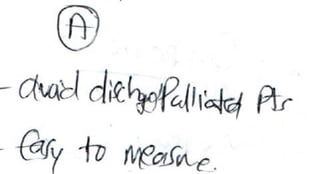 A
- avoid dischge/Palliated Pts
- Easy to measure.